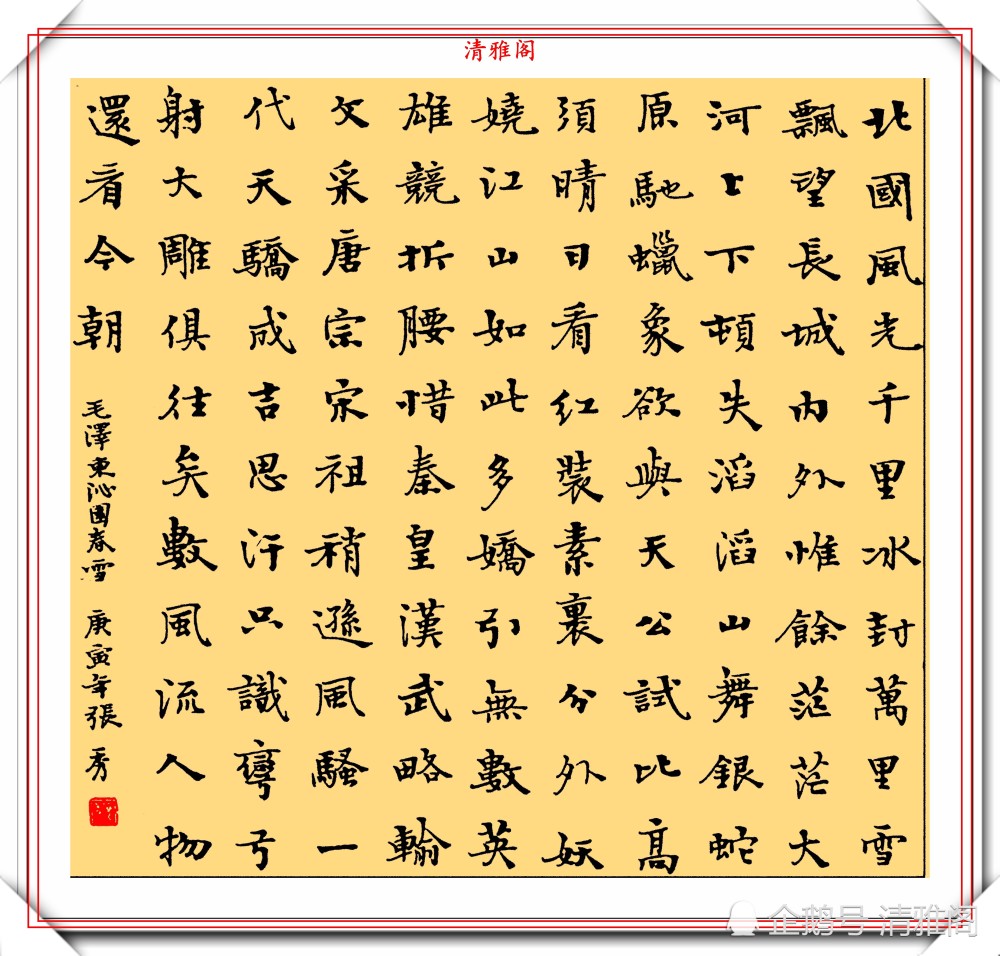 清雅阁
北國風光千里冰封萬里雪
飄望長城內外惟餘茫茫大
河上下頓失滔滔山舞銀蛇
原馳蠟象欲與天公試比高
須晴日看紅裝素裹分外妖
嬈江山如此多嬌引無數英
雄競折腰惜秦皇漢武略輸
文采唐宗宋祖稍遜風騷一
代天驕成吉思汗只識彎弓
射大雕俱往矣數風流人物
還看今朝
毛澤東沁園春雪 庚寅年張秀
企鹅号 清雅阁